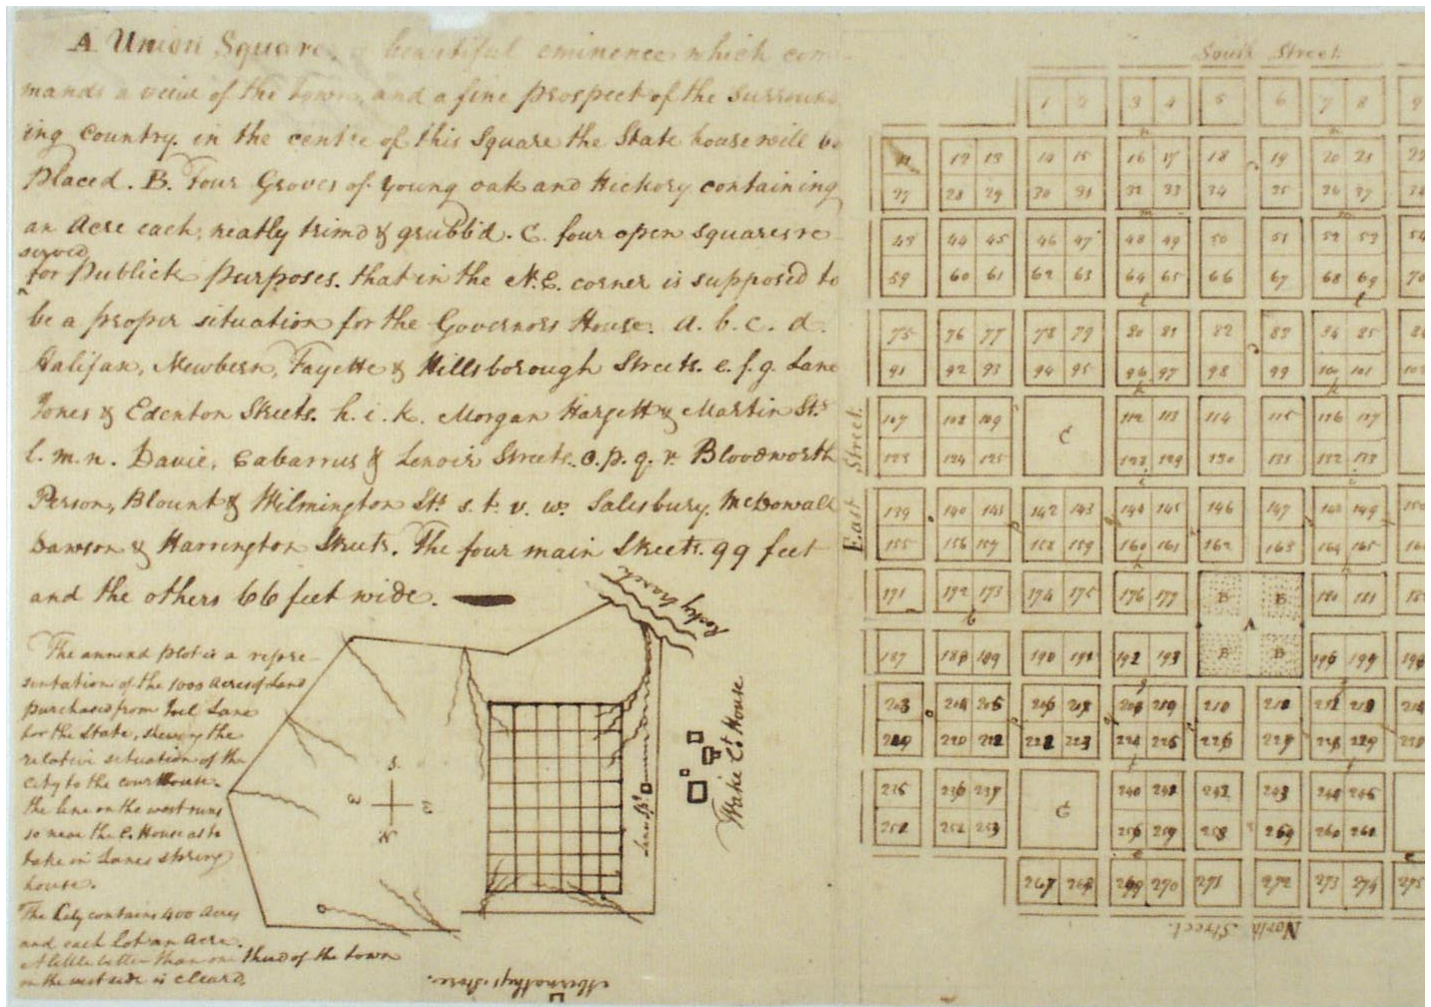 A Union Square, beautiful eminence which com
mands a view of the town, and a fine prospect of the surround
ing Country. in the centre of this Square the State house will be
placed. B. Four Groves of young oak and Hickory containing
an Acre each, neatly trim'd & grubb'd. C. four open squares re
served
for Publick Purposes. that in the N.E. corner is supposed to
be a proper situation for the Governors House. a. b. c. d.
Halifax, Newbern, Fayette & Hillsborough Streets. e. f. g. Lane
Jones & Edenton Streets. h. i. k. Morgan Hargett & Martin Sts
l. m. n. Davie, Cabarrus & Lenoir Streets. o. p. q. r. Bloodworth
Person, Blount & Wilmington Sts. s. t. v. w. Salesbury, McDowall
Dawson & Harrington Streets. The four main Streets. 99 feet
and the others 66 feet wide.
The annexd plot is a repre
sentation of the 1000 acres of Land
purchased from Joel Lane
for the State, shewg the
relative situation of the
City to the court House.
the line on the west runs
so near the C. House as to
take in Lanes spring
house.
The City contains 400 Acres
and each Lot an Acre.
A little better than one third of the town
on the west side is cleard.
Rocky branch
Wake Ct. House
S
W
E
N
Abernathys store.
South Street
1 2 3 4 5 6 7 8 9
11 12 13 14 15 16 17 18 19 20 21 22
27 28 29 30 31 32 33 34 35 36 37 38
43 44 45 46 47 48 49 50 51 52 53 54
59 60 61 62 63 64 65 66 67 68 69 70
75 76 77 78 79 80 81 82 83 84 85 86
91 92 93 94 95 96 97 98 99 100 101 102
107 108 109 C 112 113 114 115 116 117
123 124 125 128 129 130 131 132 133
East Street.
139 140 141 142 143 144 145 146 147 148 149 150
155 156 157 158 159 160 161 162 163 164 165
171 172 173 174 175 176 177 B B 180 181
A
187 188 189 190 191 192 193 B B
203 204 205 208 209 210
220
235 236 237 C 240 243 245
252 253 259 258 260
267 268 269 270 271 272 273 274 275
North Street.